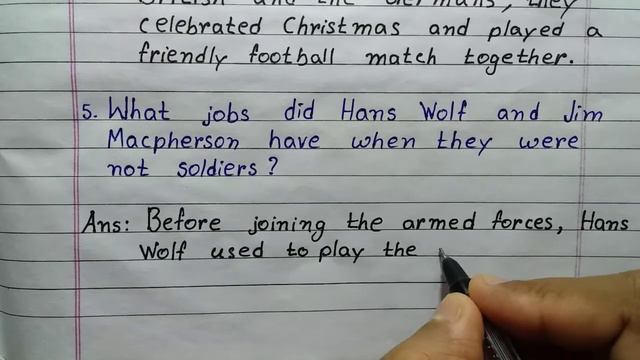 British and the Germans, they
celebrated Christmas and played a
friendly football match together.
5. What jobs did Hans Wolf and Jim
Macpherson have when they were
not soldiers?
Ans: Before joining the armed forces, Hans
Wolf used to play the